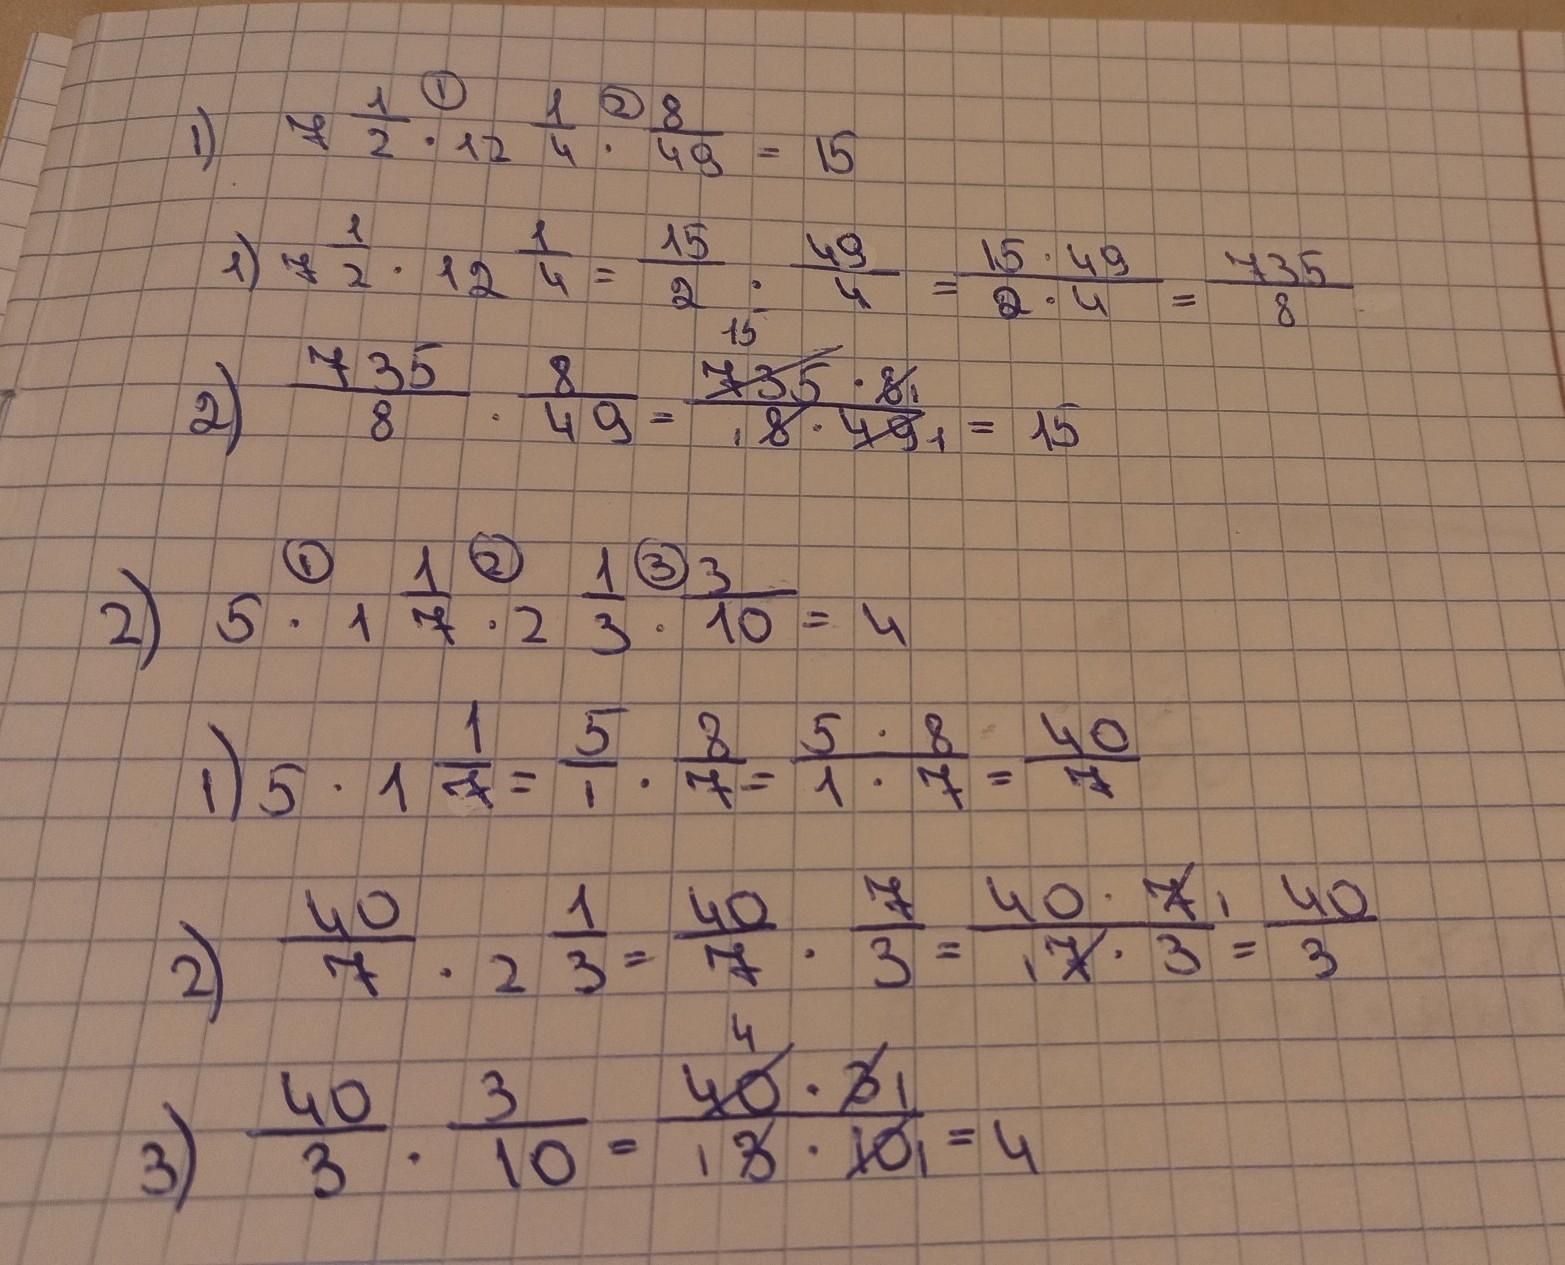 1) 7 1/2 · 12 1/4 · 8/49 = 15 ① ②
1) 7 1/2 · 12 1/4 = 15/2 · 49/4 = 15 · 49 / 2 · 4 = 735/8
2) 735/8 · 8/49 = 15 735 · 8 1 / 1 8 · 49 1 = 15
2) 5 · 1 1/7 · 2 1/3 · 3/10 = 4 ① ② ③
1) 5 · 1 1/7 = 5/1 · 8/7 = 5 · 8 / 1 · 7 = 40/7
2) 40/7 · 2 1/3 = 40/7 · 7/3 = 40 · 7 1 / 1 7 · 3 = 40/3
3) 40/3 · 3/10 = 4 40 · 3 1 / 1 3 · 10 1 = 4